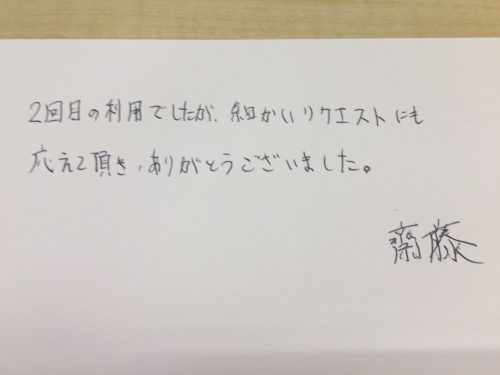 2回目の利用でしたが、細かいリクエストにも
応えて頂き、ありがとうございました。
齋藤